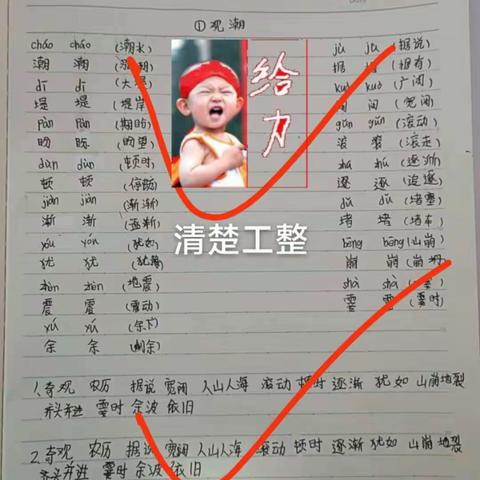 ①观潮
cháo cháo (潮水) jù jù (据说)
潮 潮 据 (据有)
dī dī (大堤) kuò kuò (广阔)
堤 堤 (堤岸) 阔 (宽阔)
pàn pàn (期盼) gǔn gǔn (滚动)
盼 盼 (盼望) 滚 滚 (滚走)
dùn dùn (顿时) zhú zhú (逐渐)
顿 顿 (停顿) 逐 逐 (追逐)
jiàn jiàn (渐渐) dǔ dǔ (堵塞)
渐 渐 (逐渐) 堵 堵 (堵车)
yóu yóu (犹如) bēng bēng (山崩)
犹 犹 (犹豫) 崩 崩 (崩塌)
zhèn zhèn (地震) shà shà
震 震 (震动) 霎 霎 (霎时)
yú yú (余下)
余 余 (剩余)
给力
清楚工整
1.夺观 农历 据说 宽阔 人山人海 滚动 顿时 逐渐 犹如 山崩地裂
齐头并进 霎时 余波 依旧
2.夺观 农历 据说 宽阔 人山人海 滚动 顿时 逐渐 犹如 山崩地裂
齐头并进 霎时 余波 依旧